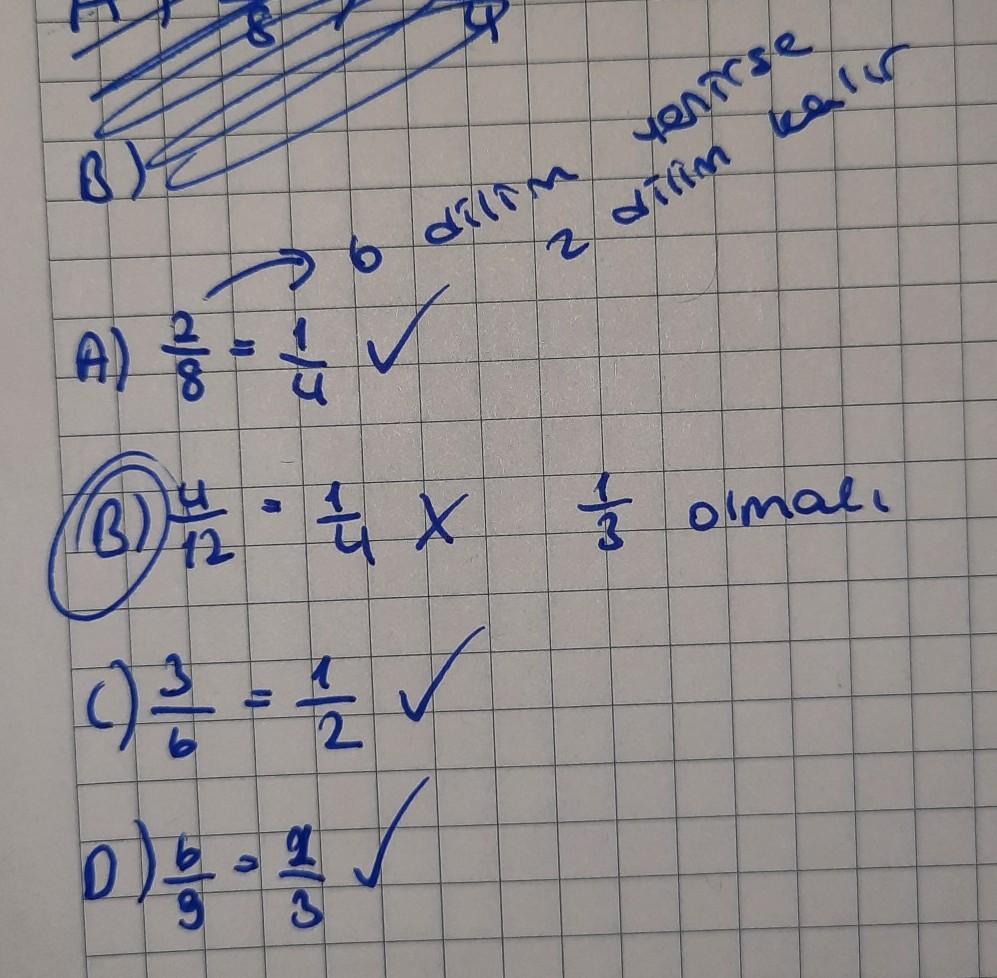 8
4
B)
6 dilim yenirse
2 dilim kalır
A) 2/8 = 1/4 ✓
B) 4/12 = 1/4 X 1/3 olmalı
C) 3/6 = 1/2 ✓
D) 6/9 = 2/3 ✓